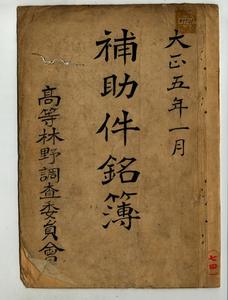 大正五年一月
補助件銘簿
高等林野調査委員會
七四